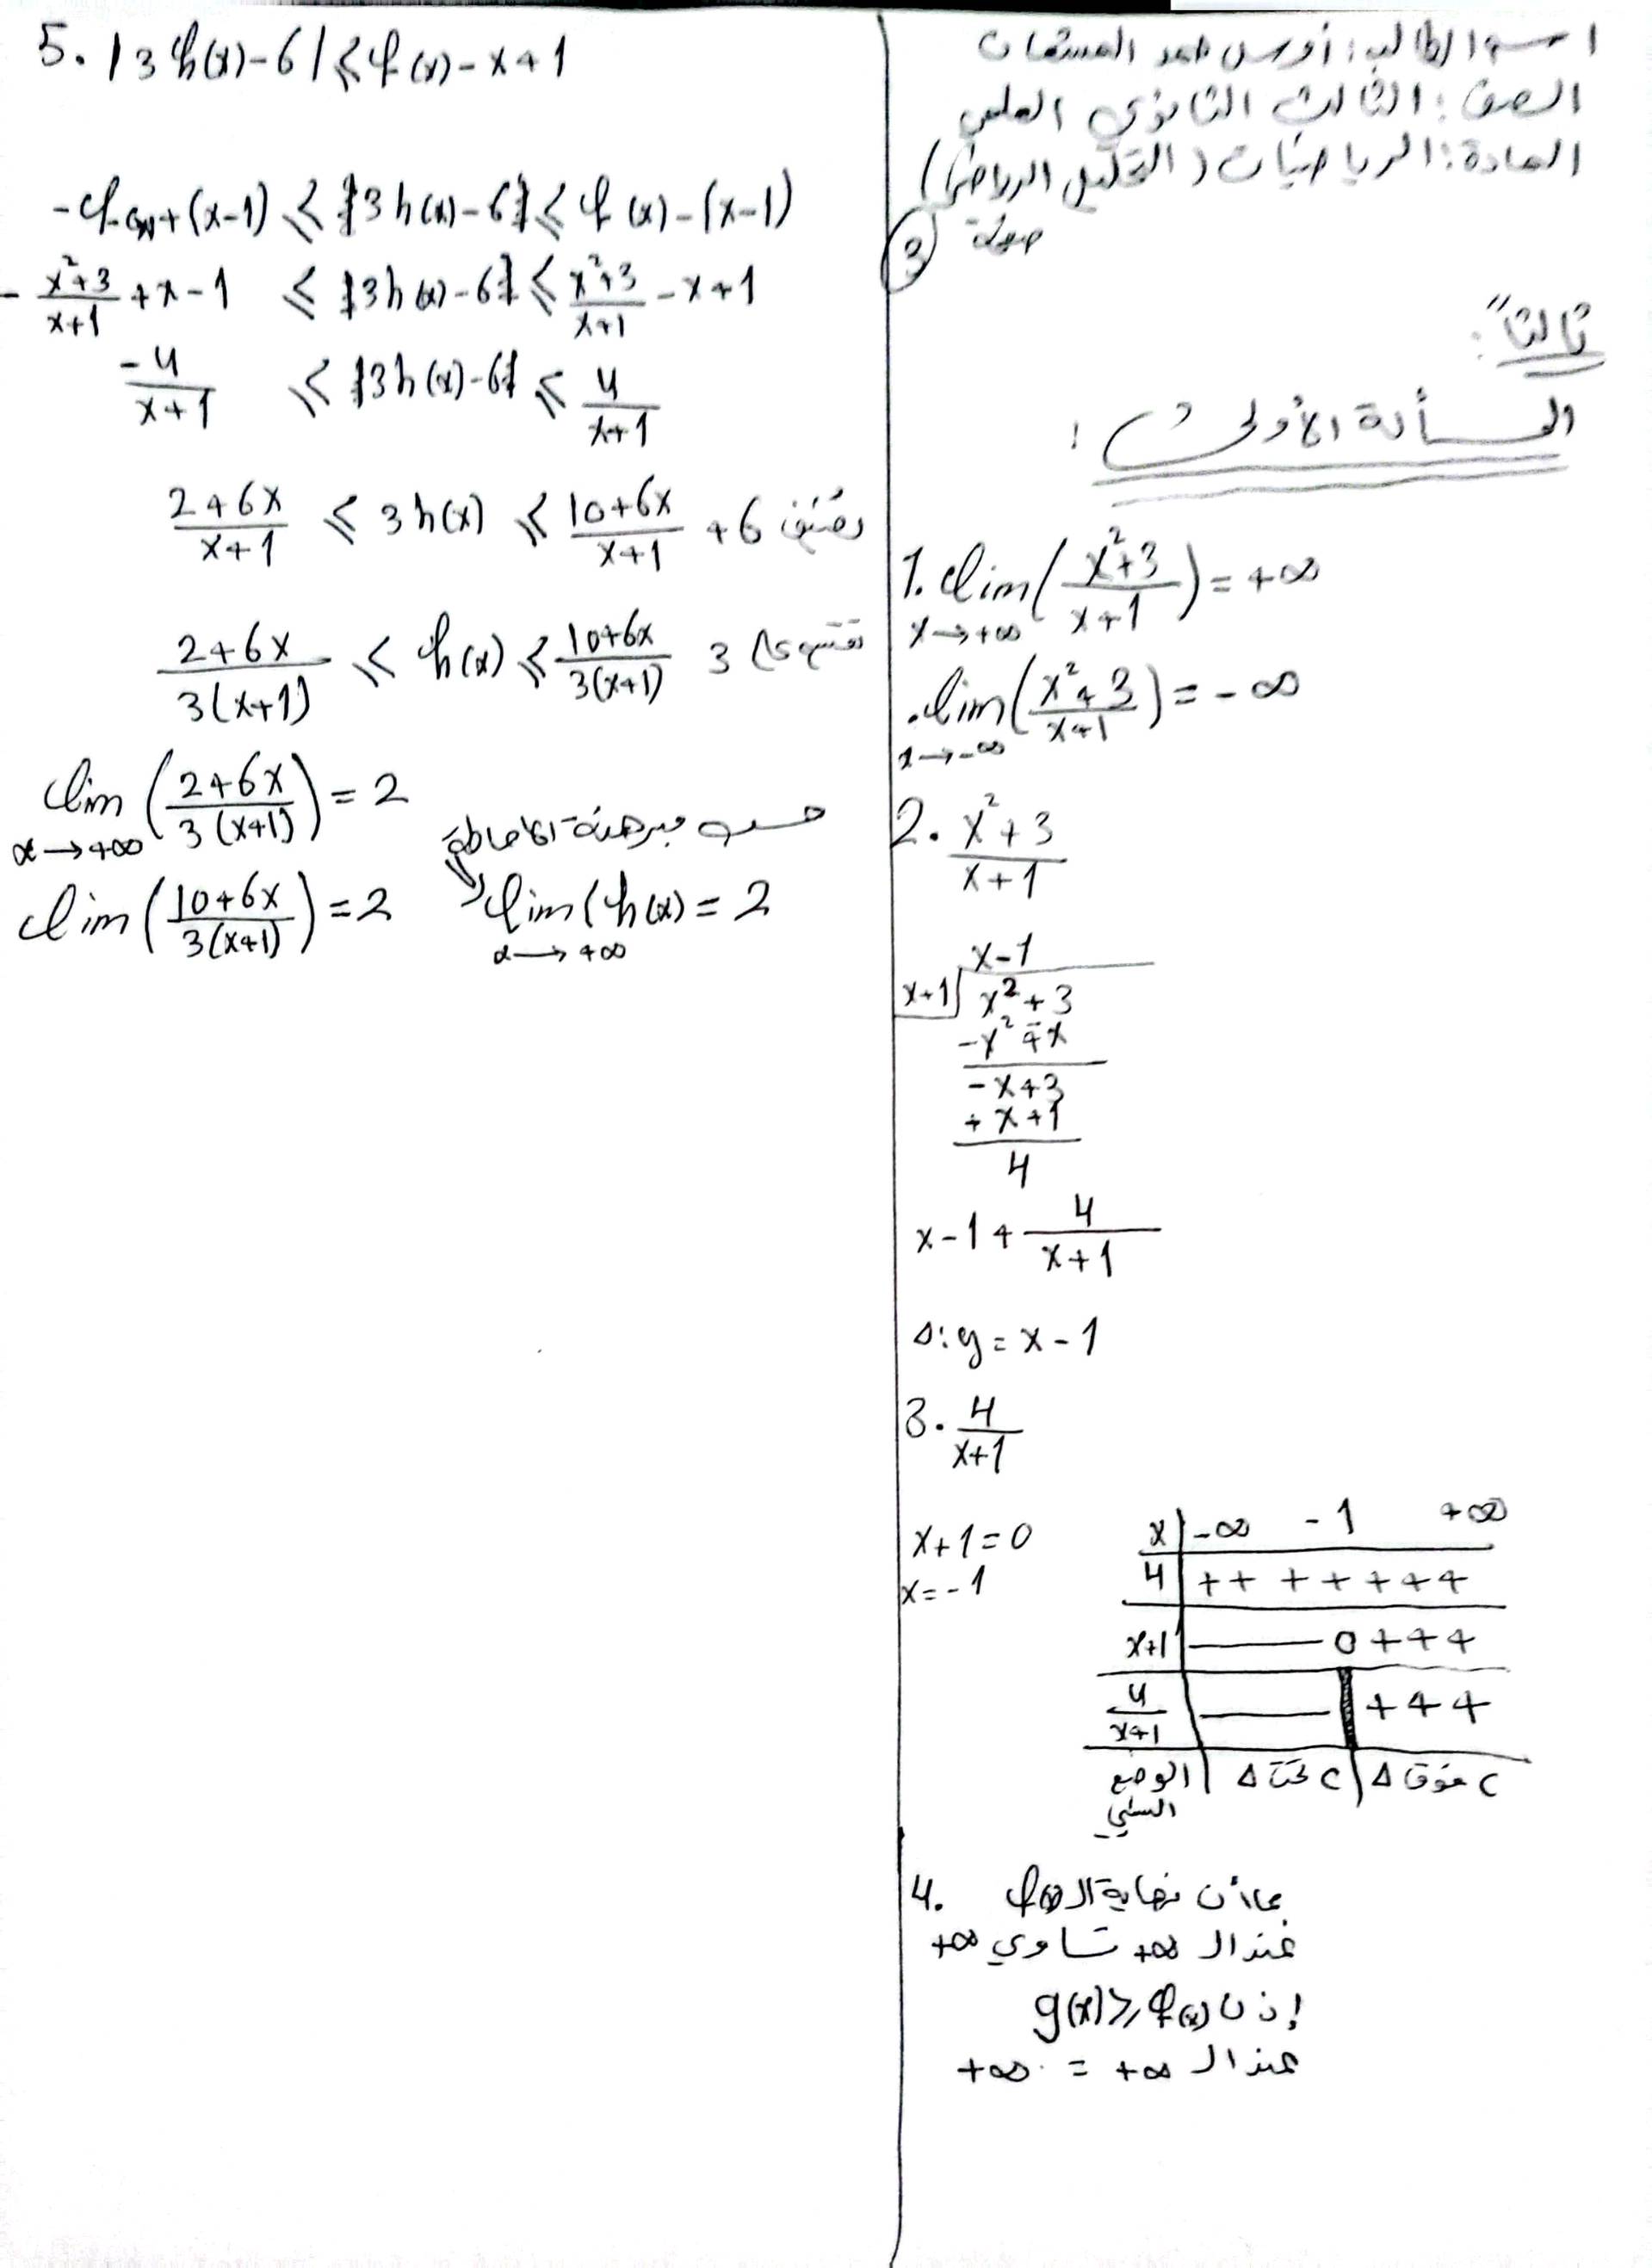 اسم الطالب: أوس
الصف: الثالث الثانوي العلمي
المادة: الرياضيات (التحليل الرياضي)
صفحة 3
ثالثاً:
المسألة الأولى:
1. lim x→+∞ (x²+3 / x+1) = +∞
. lim x→-∞ (x²+3 / x+1) = -∞
2. x²+3 / x+1
x-1
x+1 x²+3
-x² ∓ x
-x+3
+x+1
4
x-1 + 4 / x+1
Δ: y = x-1
3. 4 / x+1
x+1=0
x=-1
x | -∞ -1 +∞
4 | + + + + + + +
x+1 | —— 0 + + +
4 / x+1 | —— | + + +
الوضع النسبي | C تحت Δ | C فوق Δ
4. بما أن نهاية الـ f(x)
عند الـ +∞ تساوي +∞
إذن g(x) ≥ f(x)
عند الـ +∞ = +∞
5. |3h(x)-6| ≤ f(x)-x+1
-f(x)+(x-1) ≤ 3h(x)-6 ≤ f(x)-(x-1)
- x²+3 / x+1 + x-1 ≤ 3h(x)-6 ≤ x²+3 / x+1 - x+1
-4 / x+1 ≤ 3h(x)-6 ≤ 4 / x+1
2+6x / x+1 ≤ 3h(x) ≤ 10+6x / x+1 نضيف +6
2+6x / 3(x+1) ≤ h(x) ≤ 10+6x / 3(x+1) 3
lim x→+∞ (2+6x / 3(x+1)) = 2
حسب مبرهنة الإحاطة
lim (10+6x / 3(x+1)) = 2
lim x→+∞ (h(x) = 2